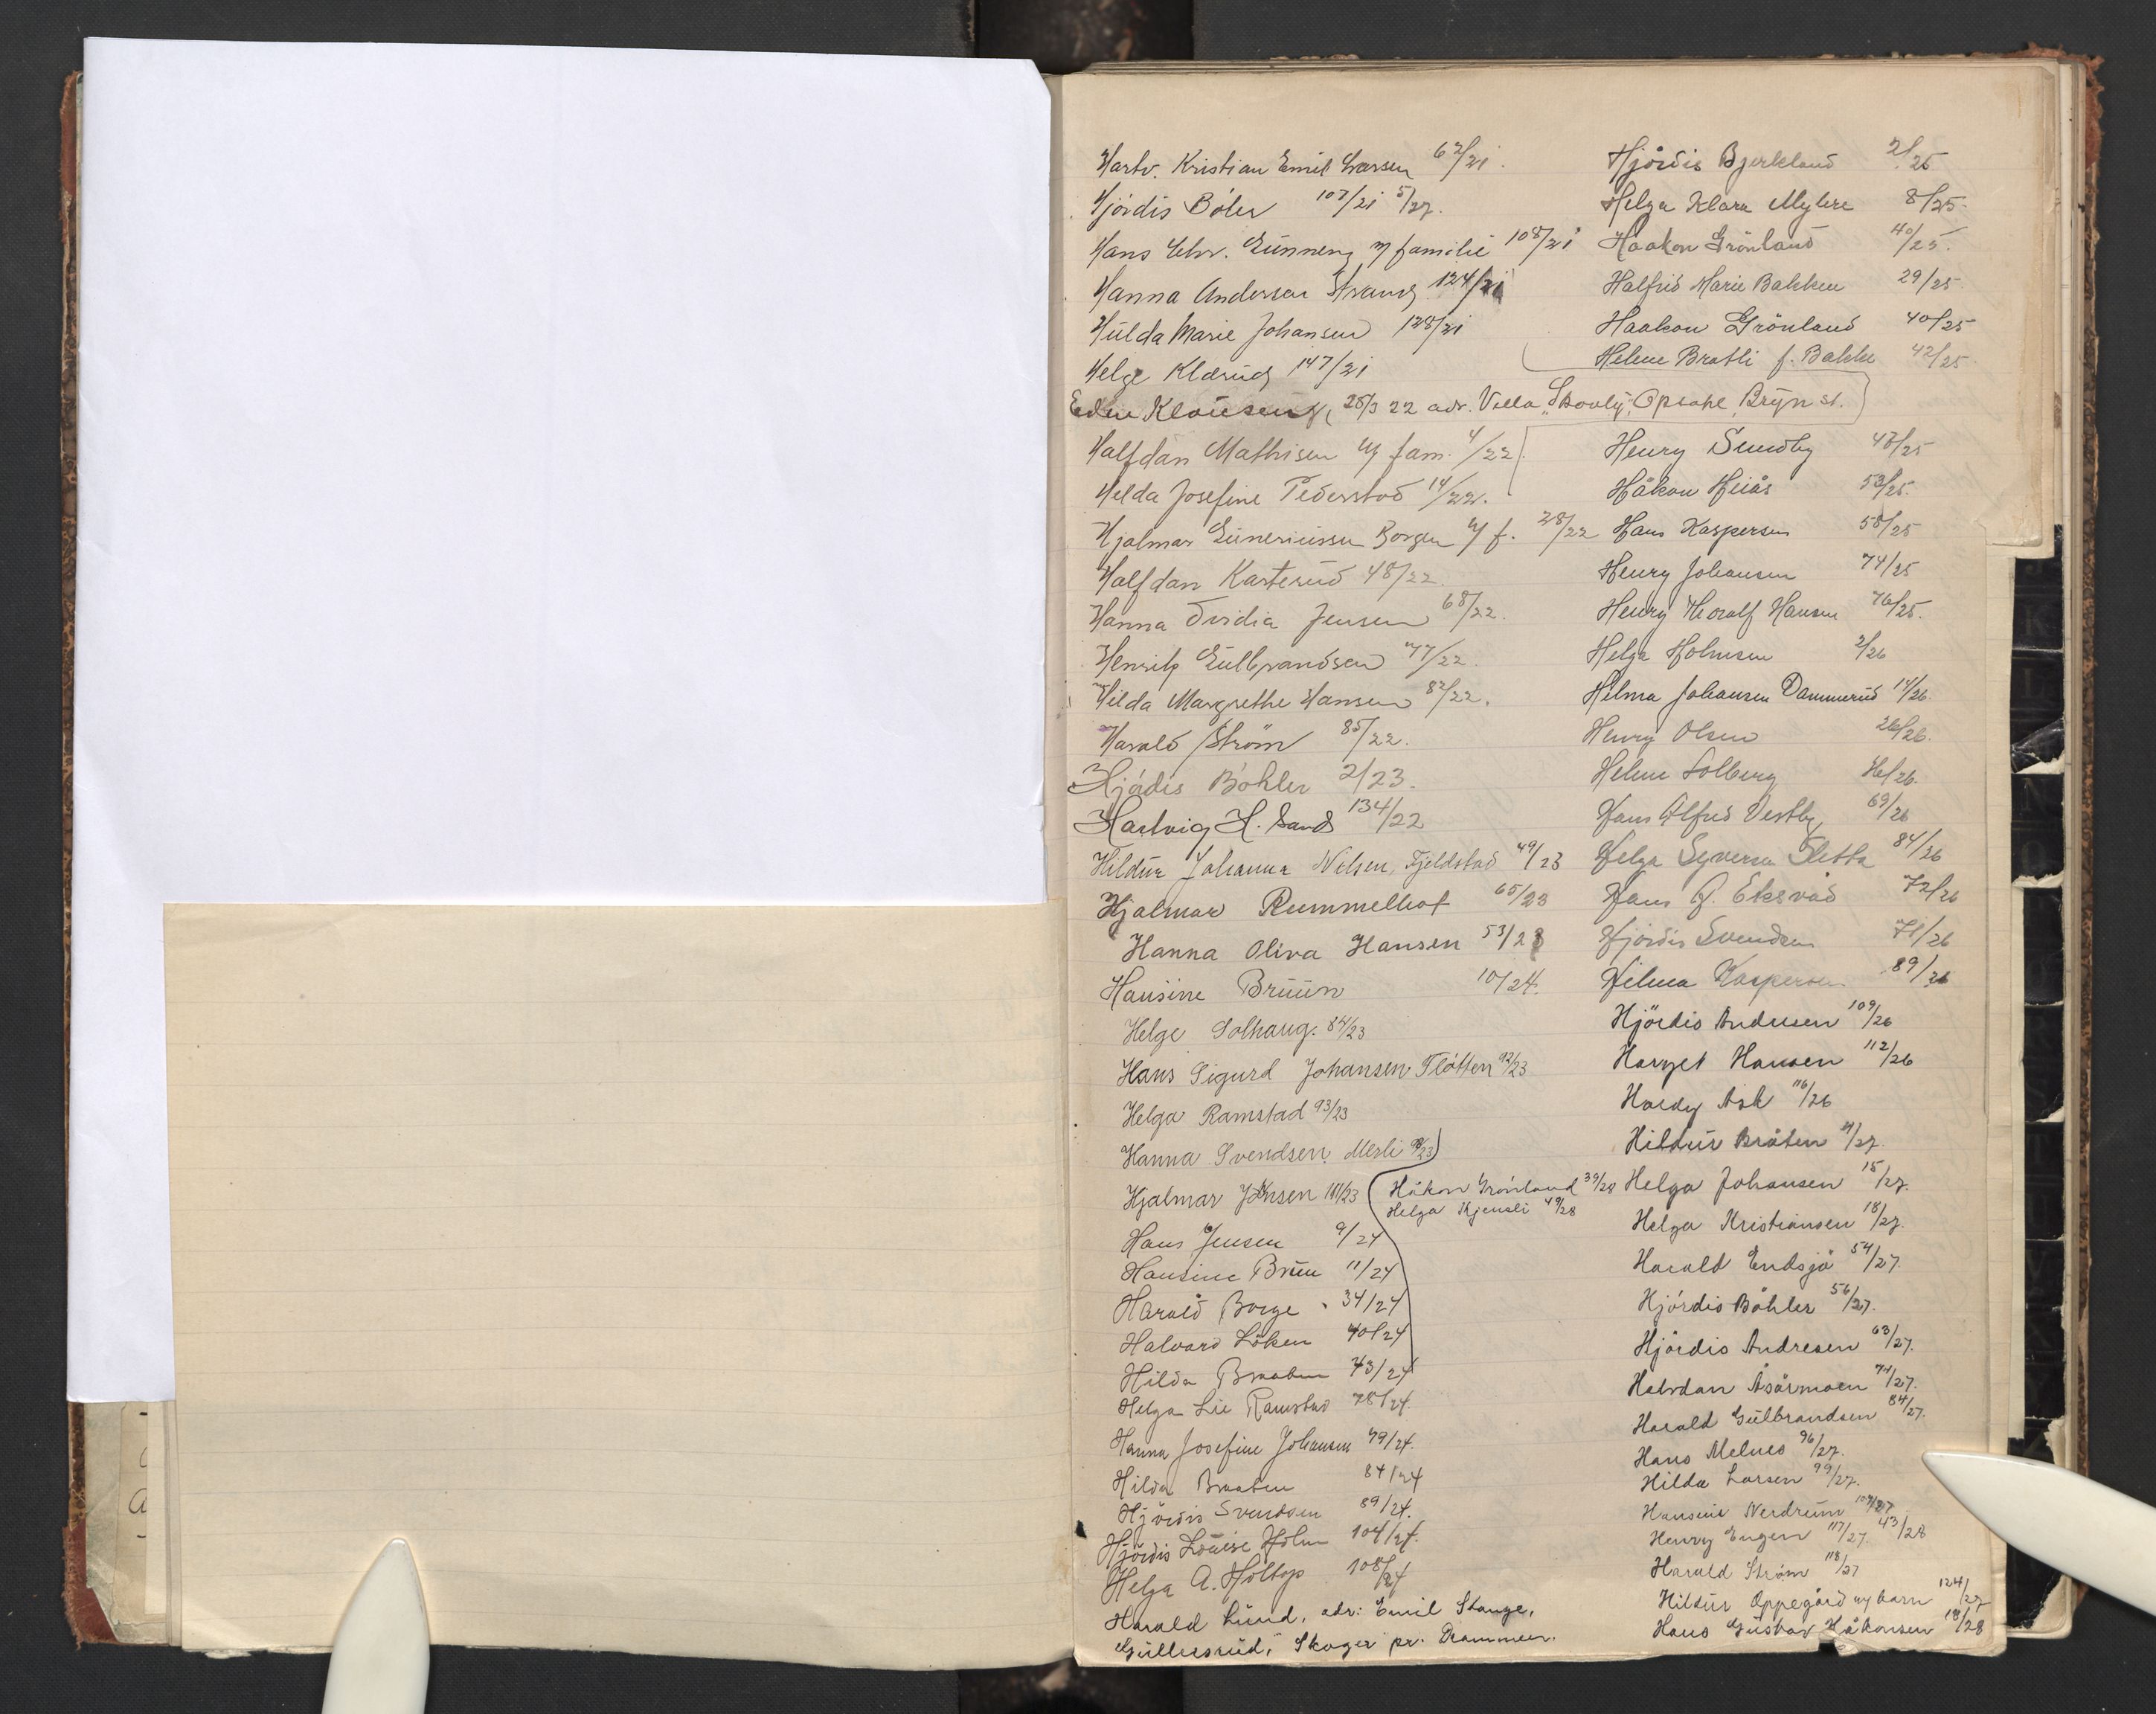 Hartv. Kristian Emil Larsen 62/21.
Hjördis Böler 107/21 5/27.
Hans Chr. Gunneng m/ familie 108/21
Hanna Andersen Strand 124/21
Hulda Marie Johansen 128/21
Helge Klærud 147/21
Edne Klausen, 25/3 22 adr. Villa "Skovly", Opsahl, Bryn st.
Halfdan Mathisen m/ fam. 4/22.
Helda Josefine Pederstad 14/22.
Hjalmar Borgen m/ f. 28/22
Halfdan Karterud 48/22.
Hanna Ovidia Jensen 68/22.
Henrik Gulbrandsen 77/22.
Hilda Margrethe Hansen 82/22.
Harald Ström 85/22.
Hjódis Böhler 2/23.
Hartvig H. Sand 134/22
Hildur Johanna Nilsen, Fjeldstad 49/23
Hjalmar Rummelhof 65/23
Hanna Oliva Hansen 53/23
Hansine Bruun 10/24.
Helge Solhaug. 84/23
Hans Sigurd Johansen Flötten 92/23
Helga Ramstad 93/23
Hanna Svendsen. Merli 98/23
Hjalmar Johnsen 101/23
Håkon Grönland 39/28
Helga Kjensli 49/28
Hans Jensen 9/24
Hansine Bruu 11/24
Harald Borge 34/24
Halvard Löken 40/24
Hilda Braaten 43/24
Helga Lie Ramstad 78/24.
Hanna Josefine Johansen 79/24.
Hilda Braaten 84/24
Hjördis Svendsen 89/24.
Hjördis Louise Holm 104/24.
Helga A. Holtop 108/24
Harald Lund, adr: Emil Stange,
"Gullerud," Skoger pr. Drammen.
Hjördis Bjerkland 2/25
Helga Klara Myhre 8/25.
Haakon Grönland 40/25.
Halfrid Marie Bakken 29/25.
Haakon Grönland 40/25
Helene Bratli f. Bakke 42/25.
Henry Sundby 47/25
Håkon Heiås 53/25.
Hans Kaspersen 58/25
Henry Johansen 74/25
Henry Thoralf Hansen 76/25.
Helga Holmsen 2/26
Hilma Johansen Dammerud 14/26.
Henry Olsen 26/26.
Helene Solberg 36/26.
Hans Alfred Vestby 69/26
Helga Syversen Sletta 84/26
Hans G. Eksvad 72/26
Hjördis Svendsen 71/26
Hilma Kaspersen 89/26
Hjördis Andresen 109/26
Harget Hansen 112/26
Hardy Ask 116/26
Hildur Bråten 4/27.
Helga Johansen 15/27.
Helga Kristiansen 18/27.
Harald Endsjö 54/27.
Hjördis Böhler 56/27.
Hjördis Andresen 63/27.
Halvdan Åsårmoen 74/27.
Harald Gulbrandsen 84/27.
Hans Melnes 96/27.
Hilda Larsen 99/27.
Hansine Nerdrum 107/27
Henry Engen 117/27. 43/28
Harald Ström 118/27
Hildur Oppegård m/ barn 124/27
Hans Gustav Håkonsen 18/28